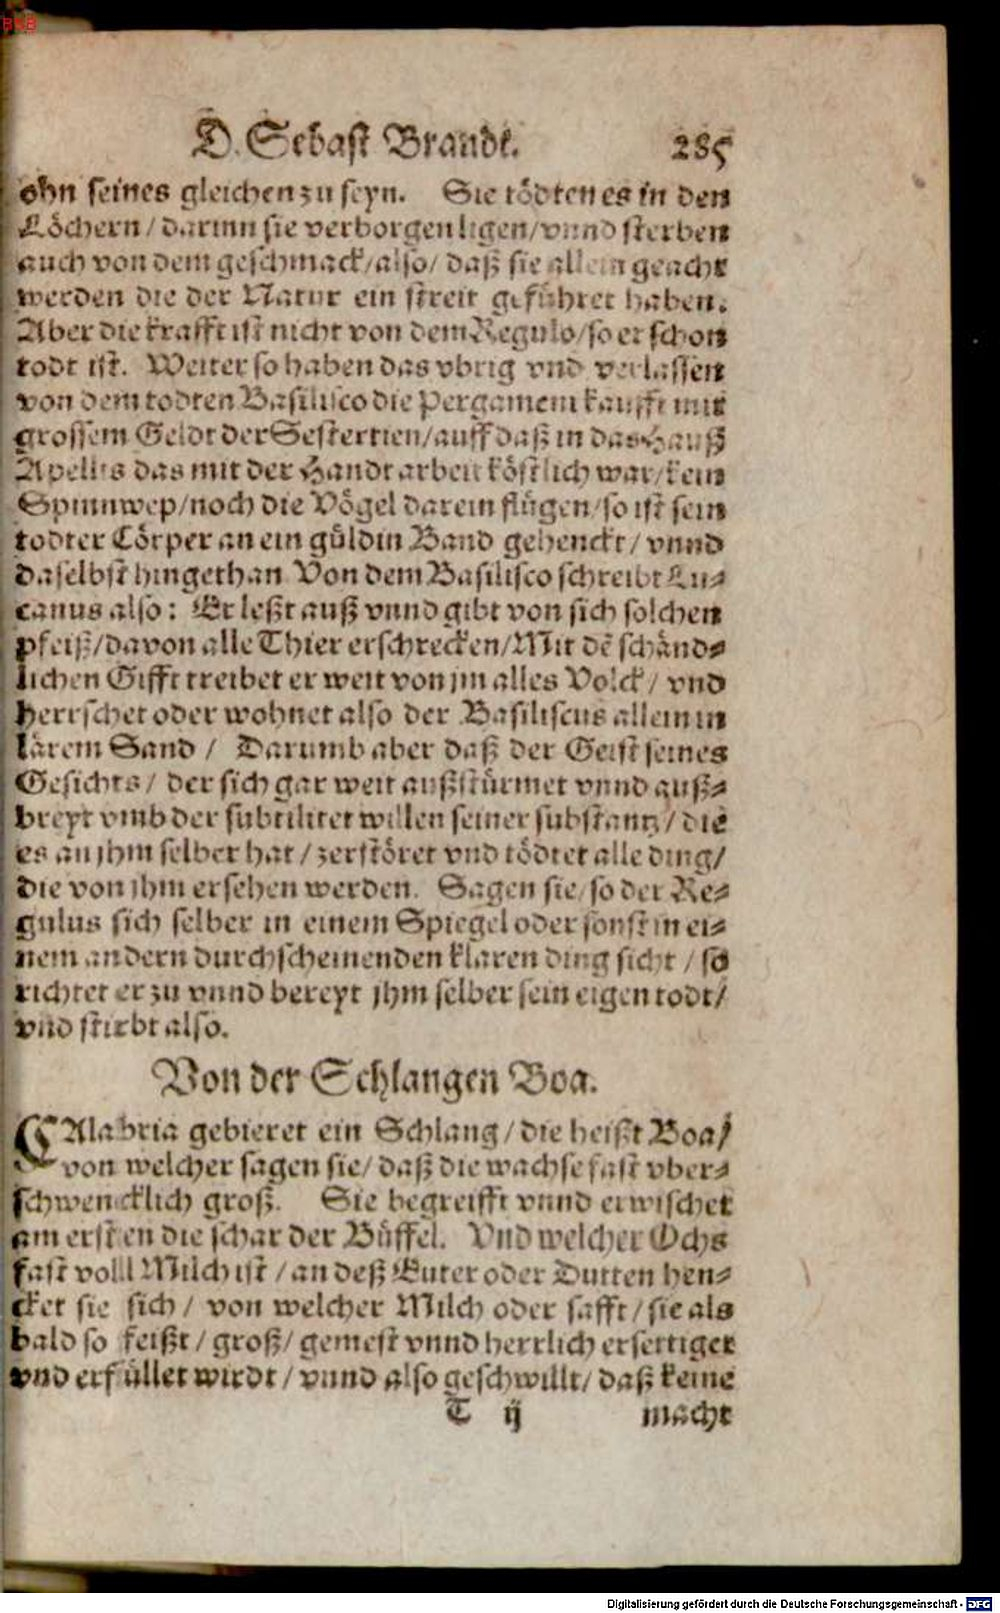 BSB
D. Sebast Brandt. 285
ohn seines gleichen zu seyn. Sie tödten es in den
Löchern / darinn sie verborgen ligen / vnnd sterben
auch von dem geschmack / also / daß sie allein geacht
werden die der Natur ein streit geführet haben.
Aber die krafft ist nicht von dem Regulo / so er schon
todt ist. Weiter so haben das vbrig vnd verlassen
von dem todten Basilisco die Pergameni kaufft mit
grossem Geldt der Sestertien / auff daß in das Hauß
Apellis das mit der Handt arbeit köstlich war / kein
Spinnwep / noch die Vögel darein flügen / so ist sein
todter Cörper an ein güldin Band gehenckt / vnnd
daselbst hingethan Von dem Basilisco schreibt Lu-
canus also: Er leßt auß vnnd gibt von sich solchen
pfeiß / davon alle Thier erschrecken / Mit dẽ schänd-
lichen Gifft treibet er weit von jm alles Volck / vnd
herrschet oder wohnet also der Basiliscus allein in
lärem Sand / Darumb aber daß der Geist seines
Gesichts / der sich gar weit außstürmet vnnd auß-
breyt vmb der subtilitet willen seiner substantz / die
es an jhm selber hat / zerstöret vnd tödtet alle ding /
die von jhm ersehen werden. Sagen sie / so der Re-
gulus sich selber in einem Spiegel oder sonst in ei-
nem andern durchscheinenden klaren ding sicht / so
richtet er zu vnnd bereyt jhm selber sein eigen todt /
vnd stirbt also.
Von der Schlangen Boa.
CAlabria gebieret ein Schlang / die heißt Boa /
von welcher sagen sie / daß die wachse fast vber-
schwencklich groß. Sie begreifft vnnd erwischet
am ersten die schar der Büffel. Vnd welcher Ochs
fast voll Milch ist / an deß Euter oder Dutten hen-
cket sie sich / von welcher Milch oder safft / sie als
bald so feißt / groß / gemest vnnd herrlich ersettiget
vnd erfüllet wirdt / vnnd also geschwillt / daß keine
T ij macht
Digitalisierung gefördert durch die Deutsche Forschungsgemeinschaft - DFG